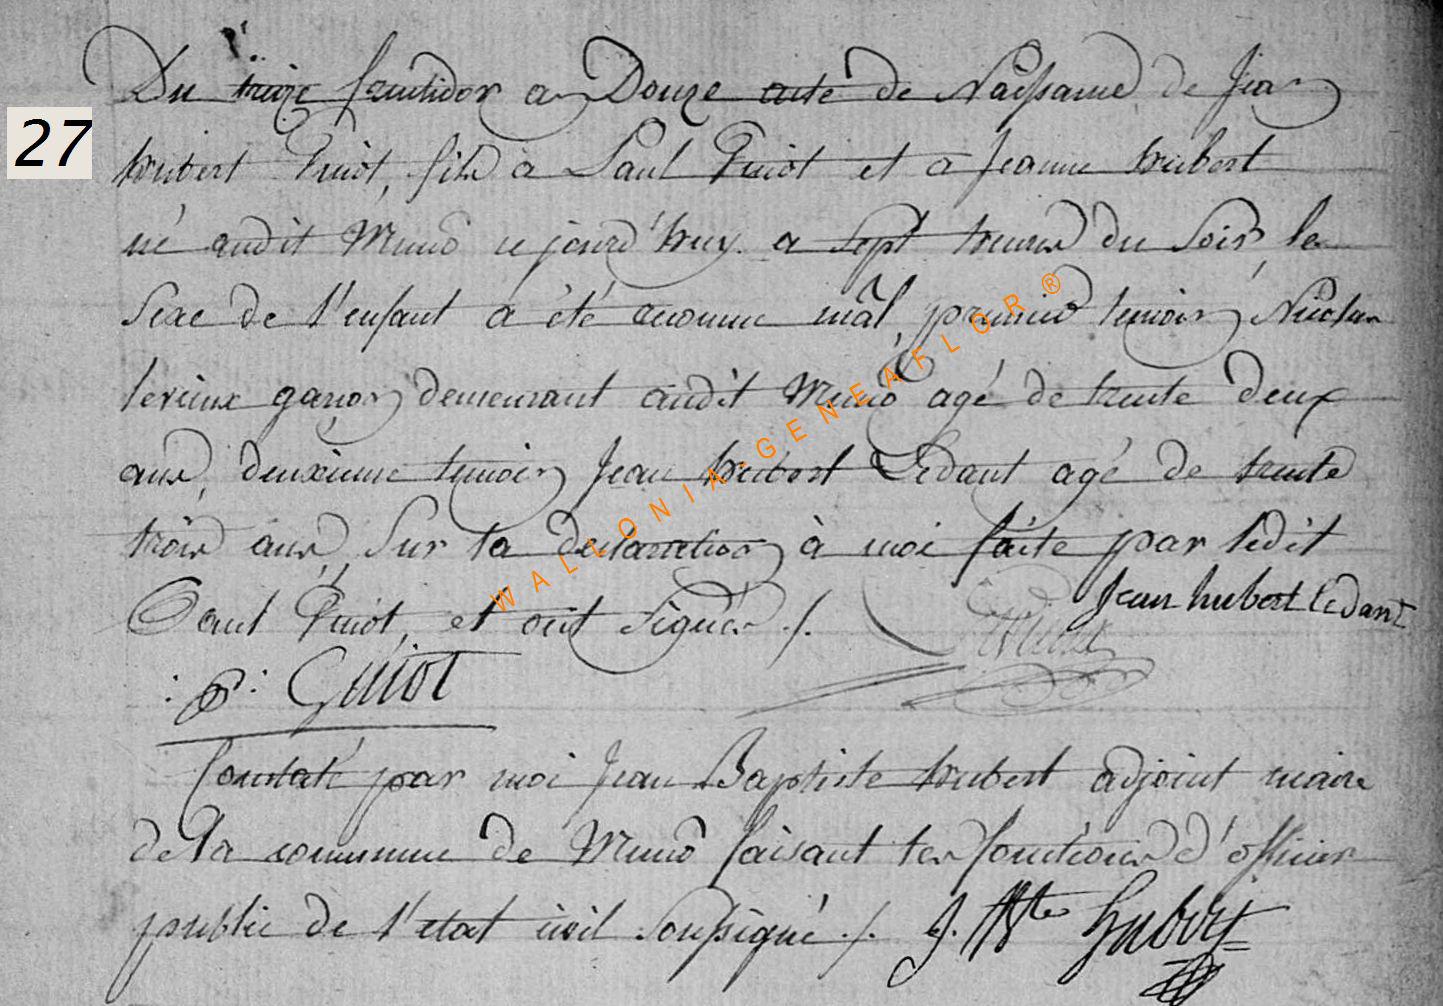 27
Du treize fructidor an Douze acte de Naissance de Jean
hubert Guiot, fils a Paul Guiot et a Jeanne hubert
né audit Muno cejourd'huy a sept heures du soir, le
sexe de l'enfant a été reconnu mâl, premier temoin Nicolas
garçon demeurant audit Muno agé de trente deux
ans, deuxieme temoin Jean hubert Ledant agé de trente
trois ans, Sur la declaration à moi faite par ledit
Paul Guiot, et ont signés ./.
Jean hubert ledant
:P: Guiot
Constaté par moi Jean Baptiste hubert adjoint maire
de la commune de Muno faisant les fonctions d'officier
public de l'etat civil soussigné ./. J. Bte hubert
WALLONIA-GENEAFLOR®